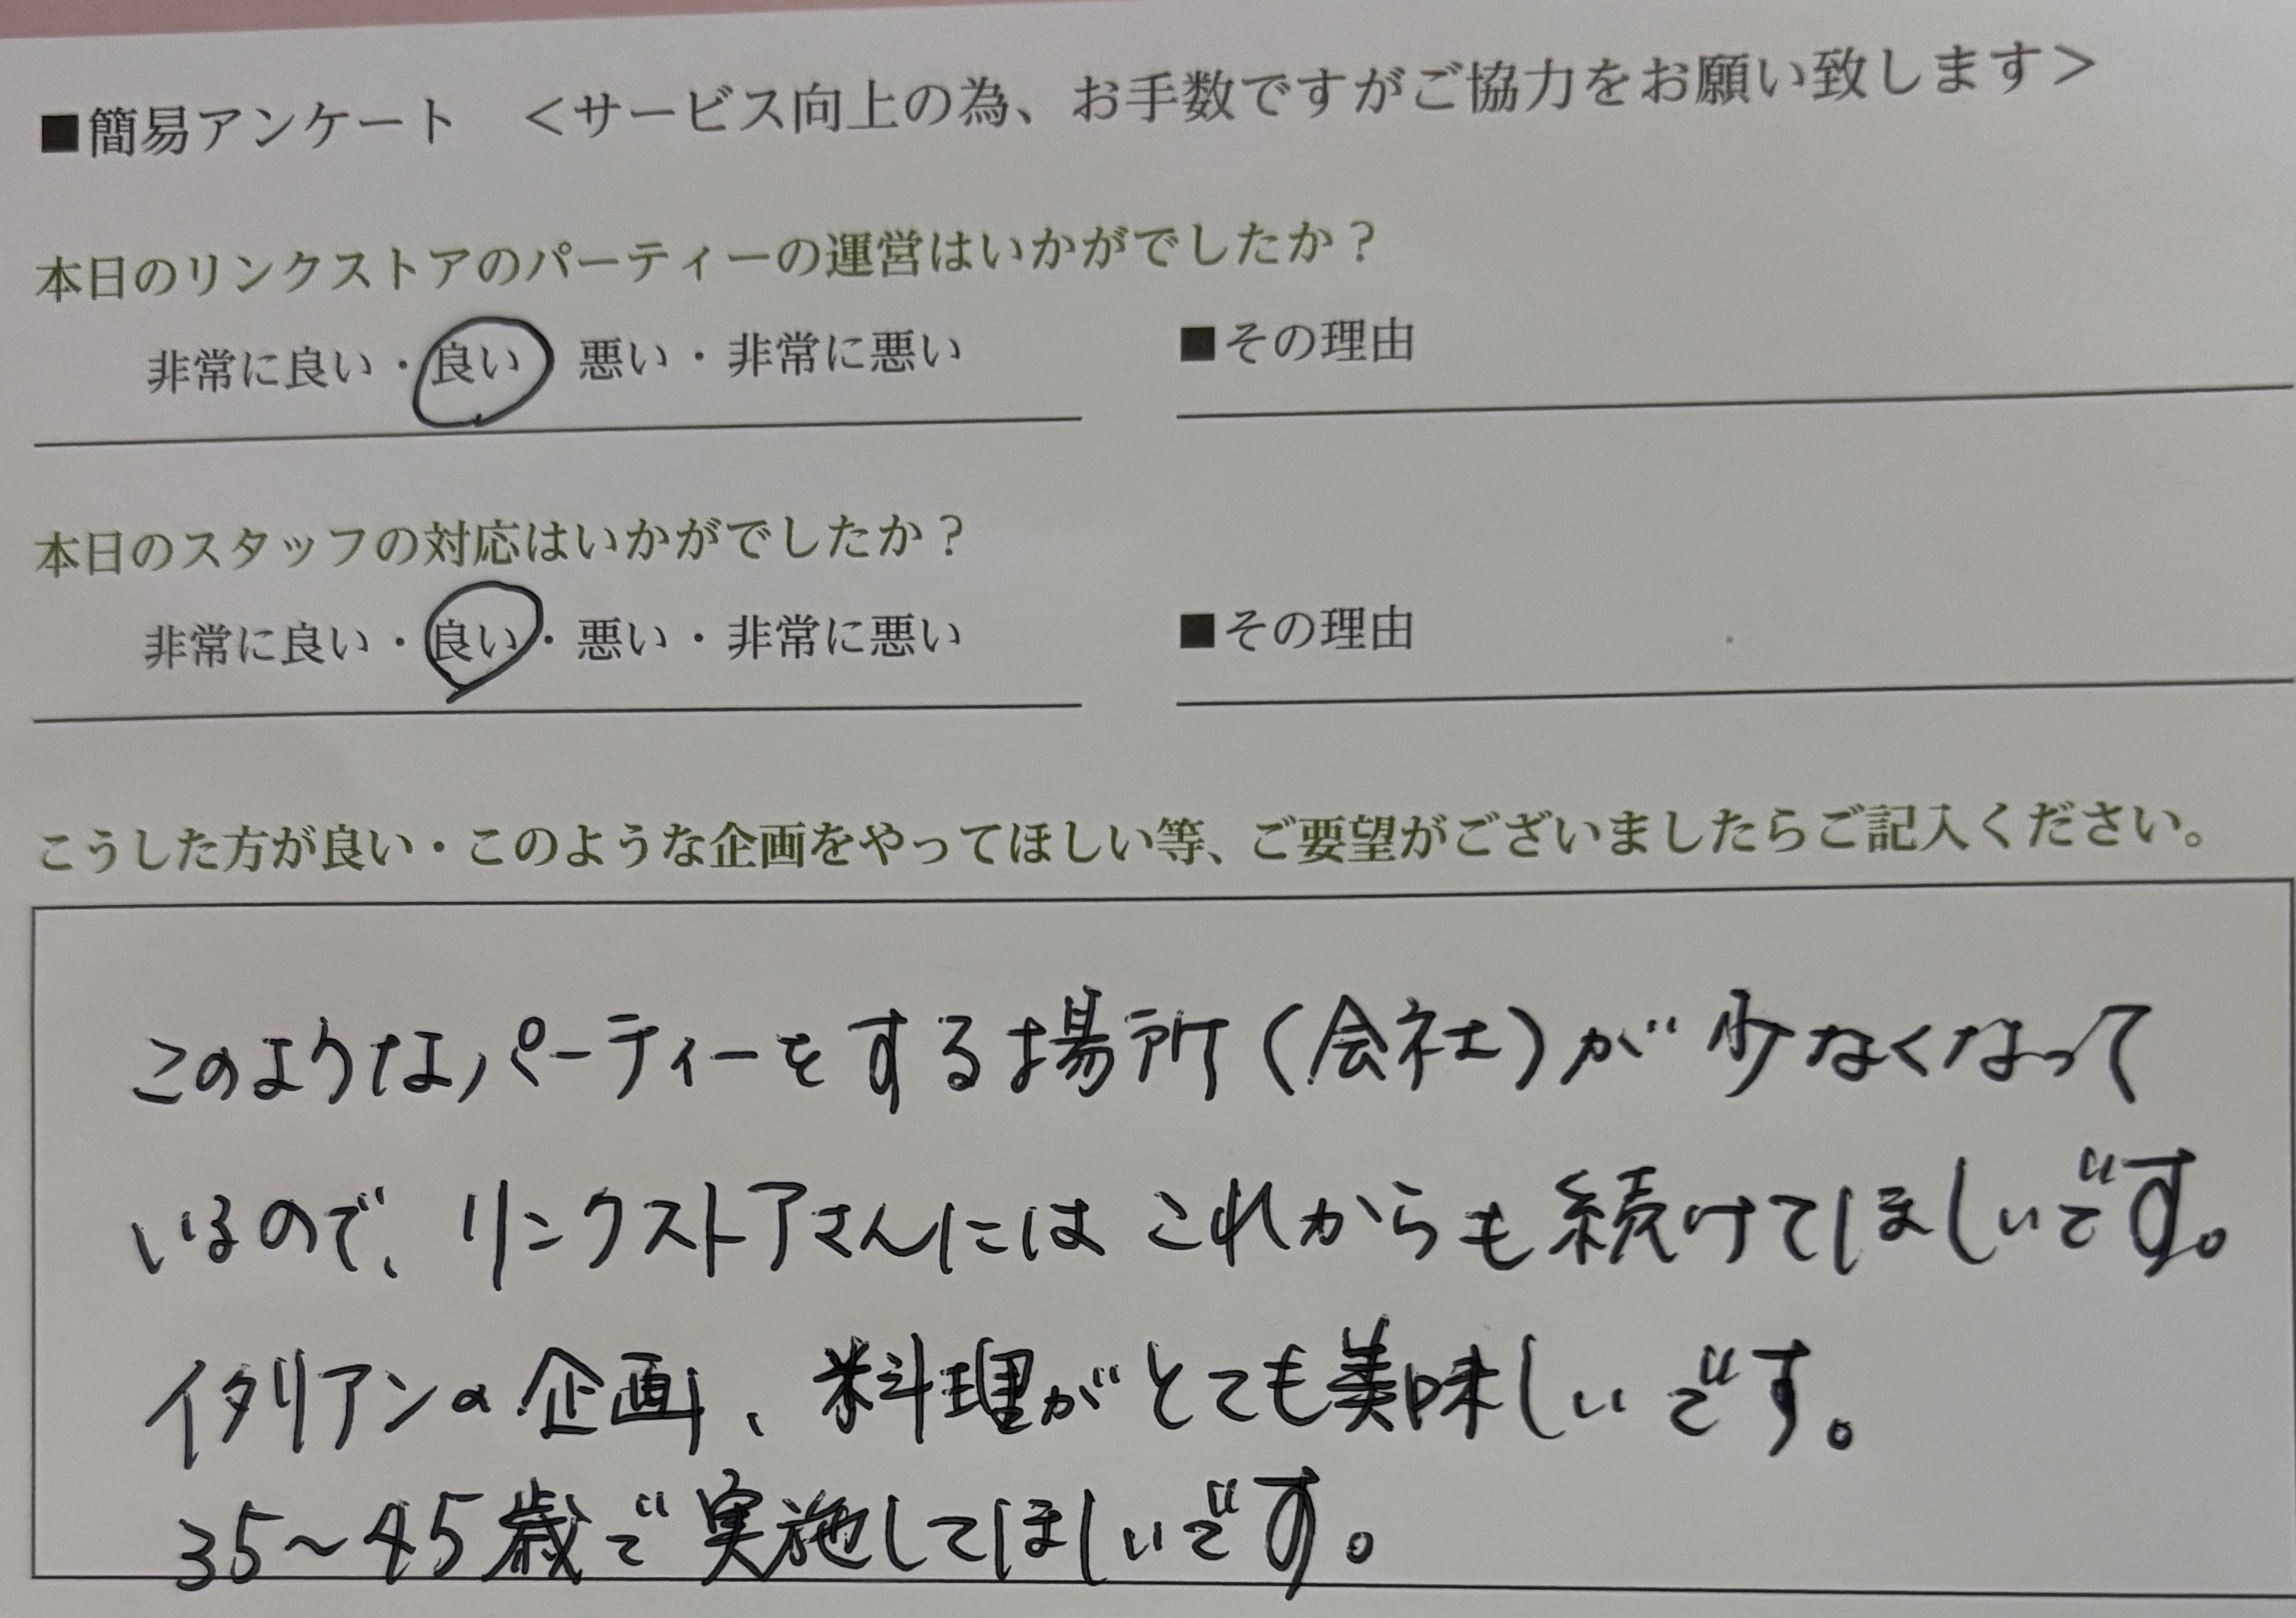 ■簡易アンケート　＜サービス向上の為、お手数ですがご協力をお願い致します＞
本日のリンクストアのパーティーの運営はいかがでしたか？
非常に良い・良い　悪い・非常に悪い　■その理由
本日のスタッフの対応はいかがでしたか？
非常に良い・良い・悪い・非常に悪い　■その理由
こうした方が良い・このような企画をやってほしい等、ご要望がございましたらご記入ください。
このようなパーティーをする場所（会社）が少なくなって
いるので、リンクストアさんにはこれからも続けてほしいです。
イタリアンの企画、料理がとても美味しいです。
35～45歳で実施してほしいです。